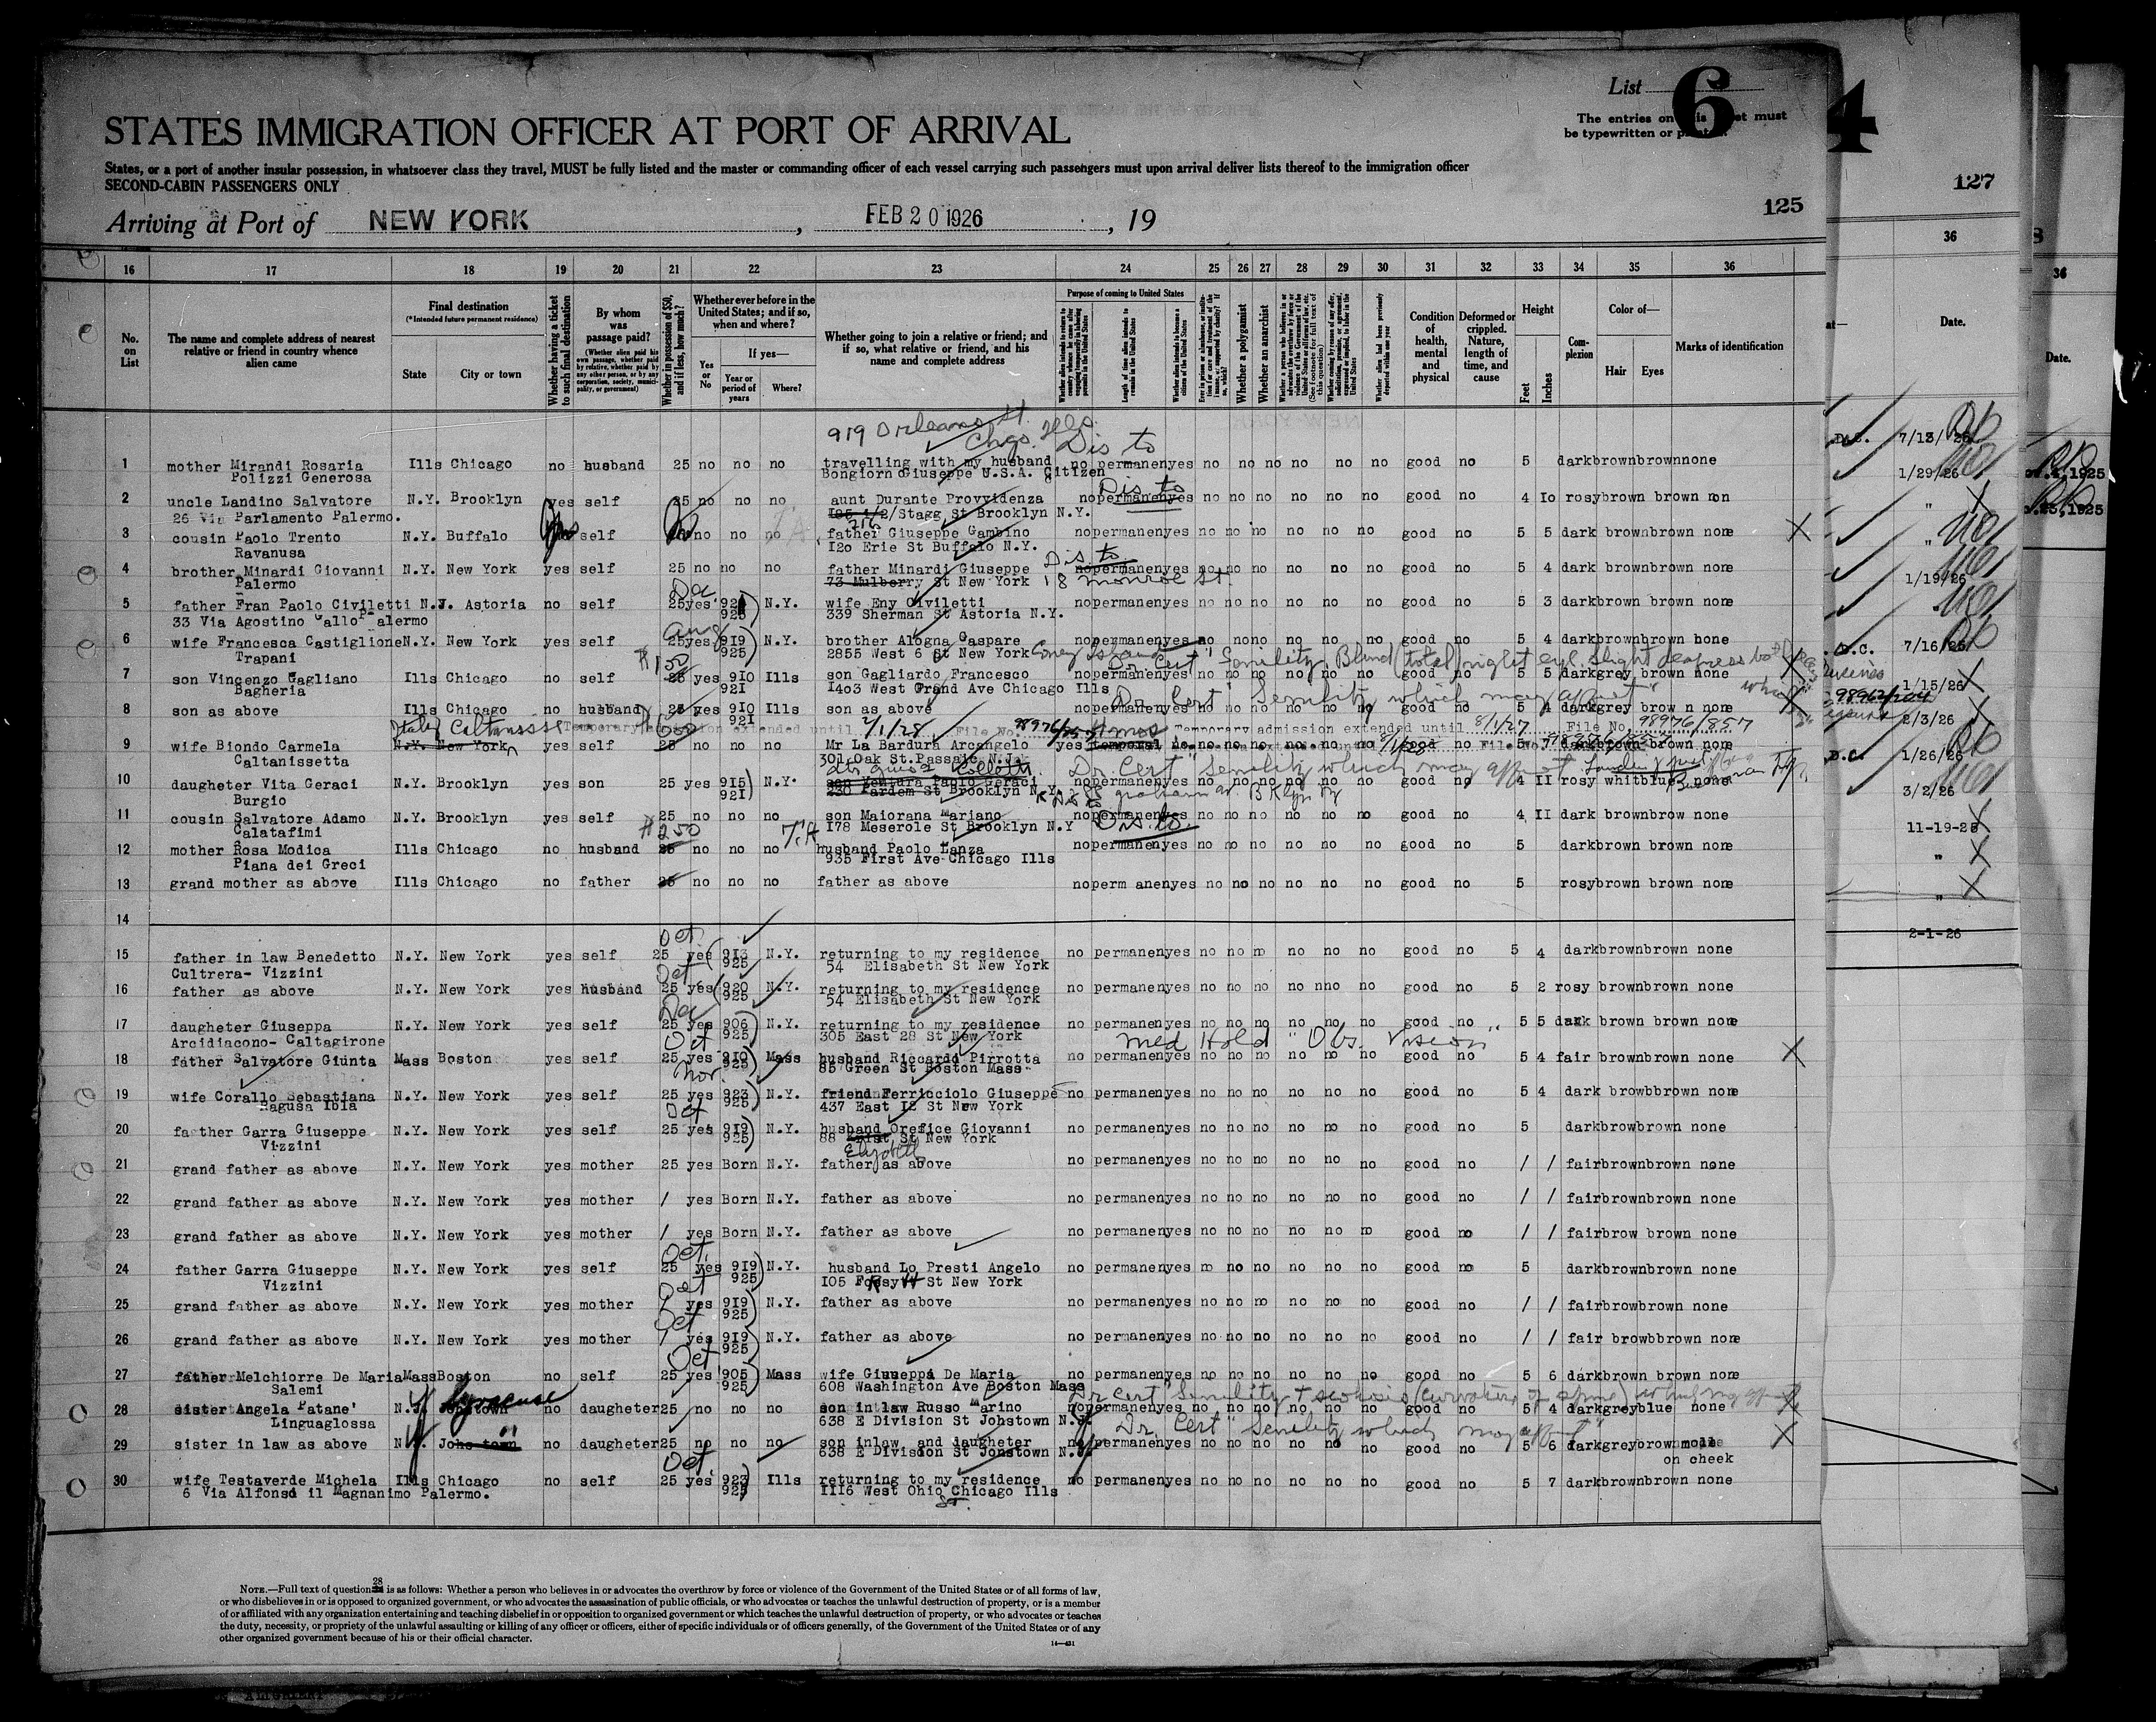 List 6
The entries on this sheet must
be typewritten or printed.
4
STATES IMMIGRATION OFFICER AT PORT OF ARRIVAL
States, or a port of another insular possession, in whatsoever class they travel, MUST be fully listed and the master or commanding officer of each vessel carrying such passengers must upon arrival deliver lists thereof to the immigration officer
SECOND-CABIN PASSENGERS ONLY
127
125
Arriving at Port of NEW YORK, FEB 20 1926, 19
16 17 18 19 20 21 22 23 24 25 26 27 28 29 30 31 32 33 34 35 36
No. on List
The name and complete address of nearest relative or friend in country whence alien came
Final destination
(*Intended future permanent residence)
State City or town
Whether having a ticket to such final destination
By whom was passage paid?
(Whether alien paid his own passage, whether paid by relative, whether paid by any other person, or by any corporation, society, municipality, or government)
Whether in possession of $50, and if less, how much?
Whether ever before in the United States; and if so, when and where?
Yes or No
If yes—
Year or period of years
Where?
Whether going to join a relative or friend; and if so, what relative or friend, and his name and complete address
Purpose of coming to United States
Length of time alien intends to remain in the United States
Whether a polygamist
Whether an anarchist
Condition of health, mental and physical
Deformed or crippled. Nature, length of time, and cause
Height
Feet Inches
Complexion
Color of—
Hair Eyes
Marks of identification
Date.
36
Date.
919 Orleans St.
Chgo. Ills.
Dis to
1 mother Mirandi Rosaria Ills Chicago no husband 25 no no no travelling with my husband no permanenyes no no no no no no good no 5 darkbrownbrownnone
Polizzi Generosa Bongiorn Giuseppe U.S.A. Citizen
Dis to
2 uncle Landino Salvatore N.Y. Brooklyn yes self 25 no no no aunt Durante Provvidenza nopermanenyes no no no no no no good no 4 Io rosybrown brown non
26 Via Parlamento Palermo. 185 1/2/Stagg St Brooklyn N.Y.
716
3 cousin Paolo Trento N.Y. Buffalo self no no no father Giuseppe Gambino nopermanenyes no no no no no no good no 5 5 dark brownbrown none X
Ravanusa I2o Erie St Buffalo N.Y.
Dis to
4 brother Minardi Giovanni N.Y. New York yes self 25 no no no father Minardi Giuseppe nopermanenyes no no no no no no good no 5 4 dark brownbrown none
Palermo 73 Mulberry St New York 18 Monroe St.
Dec
5 father Fran Paolo Civiletti N.J. Astoria no self 25yes 92 N.Y. wife Eny Civiletti nopermanenyes no no no no no no good no 5 3 darkbrown brown none
33 Via Agostino Gallo Palermo 925 339 Sherman St Astoria N.Y.
Aug
6 wife Francesca CastiglioneN.Y. New York yes self 25yes 9I9 N.Y. brother Alogna Gaspare nopermanenyes no no no no no no good no 5 4 darkbrownbrown bone
Trapani 925 2855 West 6 St New York Coney Island
$150 Dr. Cert "Senility. Blind (total) right eye. Slight
7 son Vincenzo Gagliano Ills Chicago no self 25 yes 9IO Ills son Gagliardo Francesco nopermanenyes no no no no no no good no 5 5 darkgrey brown none X
Bagheria 92I I4o3 West Grand Ave Chicago Ills
Dr. Cert "Senility which may affect"
8 son as above Ills Chicago no husband 25 yes 9IO Ills son as above nopermanenyes no no no no no no good no 5 4 darkgrey brow n none
92I
Italy Caltaniss Temporary admission extended until 2/1/28 File No. 98976/857 4 mos Temporary admission extended until 8/1/27 File No. 98976/857
9 wife Biondo Carmela N.Y. New York yes self 25 no no no Mr La Bardura Arcangelo yes temporal no no no no no no no good no 5 7 darkbrown brown none
Caltanissetta 301 Oak St.Passaic N.J.
Dr Cert "Senility which may affect
10 daugheter Vita Geraci N.Y. Brooklyn yes son 25 yes 9I5 N.Y. son Ventura Paolo Geraci nopermanenyes no no no no no no good no 4 II rosy whitblue none
Burgio 92I 230 Pardem St Brooklyn N.Y.
11 cousin Salvatore Adamo N.Y. Brooklyn yes self 25 no no no son Maiorana Mariano nopermanenyes no no no no no no good no 4 II dark brownbrow none
Calatafimi I78 Meserole St Brooklyn N.Y Dis to
$250
12 mother Rosa Modica Ills Chicago no husband 25 no no no husband Paolo Lanza nopermanenyes no no no no no no good no 5 darkbrown brown none
Piana dei Greci 935 First Ave Chicago Ills
13 grand mother as above Ills Chicago no father 25 no no no father as above noperm anenyes no no no no no no good no 5 rosybrown brown none
14
Oct.
15 father in law Benedetto N.Y. New York yes self 25 yes 9I3 N.Y. returning to my residence no permanenyes no no no no no no good no 5 4 darkbrownbrown none
Cultrera- Vizzini 925 54 Elisabeth St New York
Oct
16 father as above N.Y. New York yes husband 25 yes 920 N.Y. returning to my residence no permanenyes no no no no nno no good no 5 2 rosy brownbrown none
925 54 Elisabeth St New York
Dec
17 daugheter Giuseppa N.Y. New York yes self 25 yes 906 N.Y. returning to my residence no permanenyes no no no no no no good no 5 5 dark brown brown none
Arcidiacono- Caltagirone 925 305 East 28 St New York
Oct Med Hold "Obs. Vision"
18 father Salvatore Giunta Mass Boston yes self 25 yes 9IO Mass husband Riccardo Pirrotta no permanenyes no no no no no no good no 5 4 fair brownbrown none X
925 85 Green St Boston Mass
Nov.
19 wife Corallo Sebastiana N.Y. New York yes self 25 yes 923 N.Y. friend Ferricciolo Giuseppe no permanenyes no no no no no no good no 5 4 dark browbbrown none
Ragusa Ibla 925 437 East I2 St New York
Oct
20 father Garra Giuseppe N.Y. New York yes self 25 yes 9I9 N.Y. husband Orefice Giovanni no permanenyes no no no no no no good no 5 darkbrowbrown none
Vizzini 925 88 St New York
21 grand father as above N.Y. New York yes mother 25 yes Born N.Y. father as above no permanenyes no no no no no no good no / / fairbrownbrown none
22 grand father as above N.Y. New York yes mother / yes Born N.Y. father as above no permanenyes no no no no no no good no / / fairbrownbrown none
23 grand father as above N.Y. New York yes mother / yes Born N.Y. father as above no permanenyes no no no no no no good no / / fairbrow brown none
Oct.
24 father Garra Giuseppe N.Y. New York yes self 25 yes 9I9 N.Y. husband Lo Presti Angelo no permanenyes no no no no no no good no 5 darkbrownbrown none
Vizzini 925 I05 Forsyth St New York
Oct
25 grand father as above N.Y. New York yes mother / yes 9I9 N.Y. father as above no permanenyes no no no no no no good no / / fairbrowbrown none
925
Oct
26 grand father as above N.Y. New York yes mother / yes 9I9 N.Y. father as above no permanenyes no no no no no no good no / / fair browbbrown none
925
Oct
27 father Melchiorre De MariaMassBoston no self 25 yes 905 Mass wife Giuseppa De Maria no permanenyes no no no no no no good no 5 6 darkbrown brown none
Salemi 925 608 Washington Ave Boston Mass
Syracuse Dr Cert "Senility + scoliosis (curvature of spine) which may affect
28 sister Angela Patane' no daugheter25 no no no son in law Russo Marino nopermanenyes no no no no no no good no 5 4 darkgreyblue none X
Linguaglossa 638 E Division St Johstown N.J.
Dr. Cert "Senility which may affect"
29 sister in law as above Johs town no daugheter25 no no no son inlaw and daugheter permanenyes no no no no no no good no 5 6 darkgreybrownmole X
638 E Division St Jonstown N. on cheek
Oct.
30 wife Testaverde Mighela Ills Chicago no self 25 yes 923 Ills returning to my residence no permanenyes no no no no no no good no 5 7 darkbrownbrown none
6 Via Alfonso il Magnanimo Palermo. 925 III6 West Ohio Chicago Ills
St.
7/13/26
1/29/26
"
"
1/19/26
D.C. 7/16/26
1/15/26
98962/204
2/3/26
D.C. 1/26/26
3/2/26
11-19-25
"
"
2-1-26
28
NOTE.—Full text of question is as follows: Whether a person who believes in or advocates the overthrow by force or violence of the Government of the United States or of all forms of law,
or who disbelieves in or is opposed to organized government, or who advocates the assassination of public officials, or who advocates or teaches the unlawful destruction of property, or is a member
of or affiliated with any organization entertaining and teaching disbelief in or opposition to organized government or which teaches the unlawful destruction of property, or who advocates or teaches
the duty, necessity, or propriety of the unlawful assaulting or killing of any officer or officers, either of specific individuals or of officers generally, of the Government of the United States or of any
other organized government because of his or their official character.
14—431